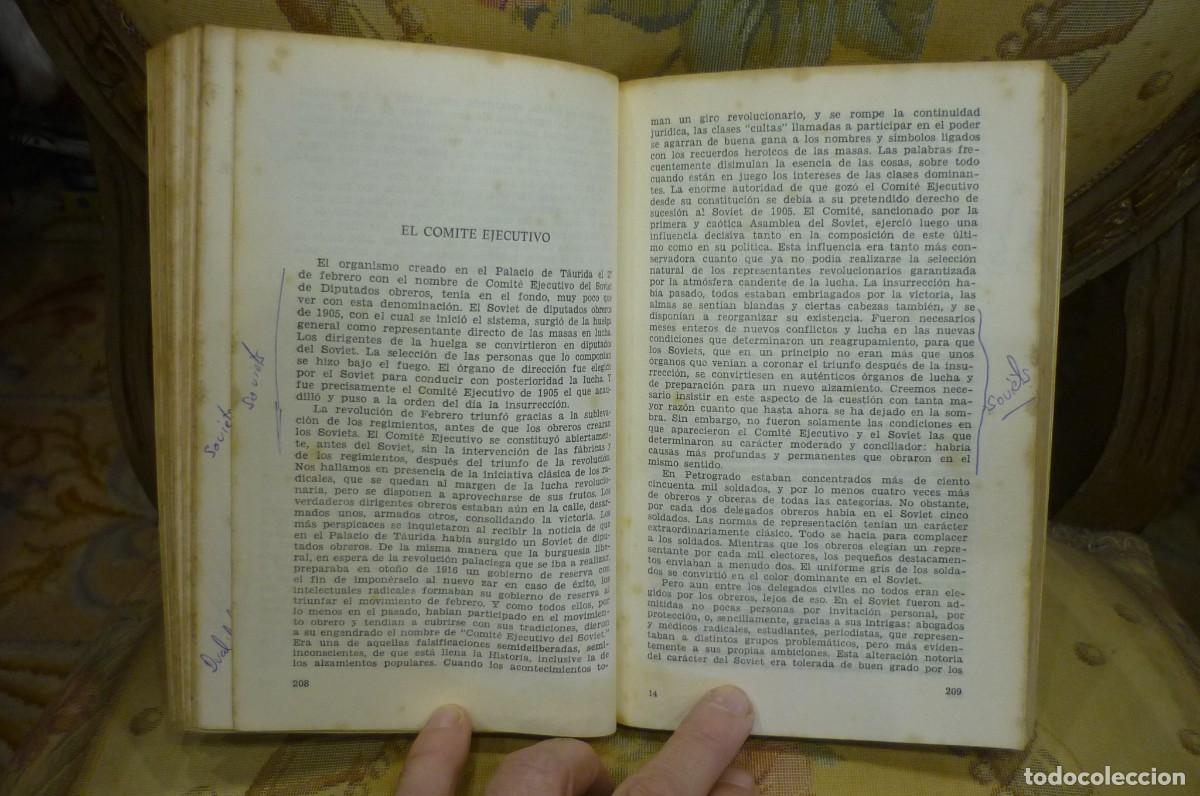 EL COMITE EJECUTIVO
El organismo creado en el Palacio de Táurida el 2
de febrero con el nombre de Comité Ejecutivo del Soviet
de Diputados obreros, tenía en el fondo, muy poco que
ver con esta denominación. El Soviet de diputados obreros
de 1905, con el cual se inició el sistema, surgió de la huelga
general como representante directo de las masas en lucha.
Los dirigentes de la huelga se convirtieron en diputados
del Soviet. La selección de las personas que lo componían
se hizo bajo el fuego. El órgano de dirección fue elegido
por el Soviet para conducir con posterioridad la lucha. Y
fue precisamente el Comité Ejecutivo de 1905 el que acau-
dilló y puso a la orden del día la insurrección.
La revolución de Febrero triunfó gracias a la subleva-
ción de los regimientos, antes de que los obreros crearan
los Soviets. El Comité Ejecutivo se constituyó abiertamen-
te, antes del Soviet, sin la intervención de las fábricas y
de los regimientos, después del triunfo de la revolución.
Nos hallamos en presencia de la iniciativa clásica de los ra-
dicales, que se quedan al margen de la lucha revolucio-
naria, pero se disponen a aprovecharse de sus frutos. Los
verdaderos dirigentes obreros estaban aún en la calle, desar-
mados unos, armados otros, consolidando la victoria. Los
más perspicaces se inquietaron al recibir la noticia de que
en el Palacio de Táurida había surgido un Soviet de dipu-
tados obreros. De la misma manera que la burguesía libe-
ral, en espera de la revolución palaciega que se iba a realizar,
preparaba en otoño de 1916 un gobierno de reserva con
el fin de imponérselo al nuevo zar en caso de éxito, los
intelectuales radicales formaban su gobierno de reserva al
triunfar el movimiento de febrero. Y como todos ellos, por
lo menos en el pasado, habían participado en el movimien-
to obrero y tendían a cubrirse con sus tradiciones, dieron
a su engendrado el nombre de "Comité Ejecutivo del Soviet."
Era una de aquellas falsificaciones semideliberadas, semi-
inconscientes, de que está llena la Historia, inclusive la de
los alzamientos populares. Cuando los acontecimientos to-
208
soviets
soviets
man un giro revolucionario, y se rompe la continuidad
jurídica, las clases "cultas" llamadas a participar en el poder
se agarran de buena gana a los nombres y símbolos ligados
con los recuerdos heroicos de las masas. Las palabras fre-
cuentemente disimulan la esencia de las cosas, sobre todo
cuando están en juego los intereses de las clases dominan-
tes. La enorme autoridad de que gozó el Comité Ejecutivo
desde su constitución se debía a su pretendido derecho de
sucesión al Soviet de 1905. El Comité, sancionado por la
primera y caótica Asamblea del Soviet, ejerció luego una
influencia decisiva tanto en la composición de este últi-
mo como en su política. Esta influencia era tanto más con-
servadora cuanto que ya no podía realizarse la selección
natural de los representantes revolucionarios garantizada
por la atmósfera candente de la lucha. La insurrección ha-
bía pasado, todos estaban embriagados por la victoria, las
almas se sentían blandas y ciertas cabezas también, y se
disponían a reorganizar su existencia. Fueron necesarios
meses enteros de nuevos conflictos y lucha en las nuevas
condiciones que determinaron un reagrupamiento, para que
los Soviets, que en un principio no eran más que unos
órganos que venían a coronar el triunfo después de la insu-
rrección, se convirtiesen en auténticos órganos de lucha y
de preparación para un nuevo alzamiento. Creemos nece-
sario insistir en este aspecto de la cuestión con tanta ma-
yor razón cuanto que hasta ahora se ha dejado en la som-
bra. Sin embargo, no fueron solamente las condiciones en
que aparecieron el Comité Ejecutivo y el Soviet las que
determinaron su carácter moderado y conciliador: habría
causas más profundas y permanentes que obraron en el
mismo sentido.
En Petrogrado estaban concentrados más de ciento
cincuenta mil soldados, y por lo menos cuatro veces más
de obreros y obreras de todas las categorías. No obstante,
por cada dos delegados obreros había en el Soviet cinco
soldados. Las normas de representación tenían un carácter
extraordinariamente clásico. Todo se hacía para complacer
a los soldados. Mientras que los obreros elegían un repre-
sentante por cada mil electores, los pequeños destacamen-
tos enviaban a menudo dos. El uniforme gris de los solda-
dos se convirtió en el color dominante en el Soviet.
Pero aun entre los delegados civiles no todos eran ele-
gidos por los obreros, lejos de eso. En el Soviet fueron ad-
mitidas no pocas personas por invitación personal, por
protección, o, sencillamente, gracias a sus intrigas: abogados
y médicos radicales, estudiantes, periodistas, que represen-
taban a distintos grupos problemáticos, pero más eviden-
temente a sus propias ambiciones. Esta alteración notoria
del carácter del Soviet era tolerada de buen grado por los
14
209
soviets
todocoleccion